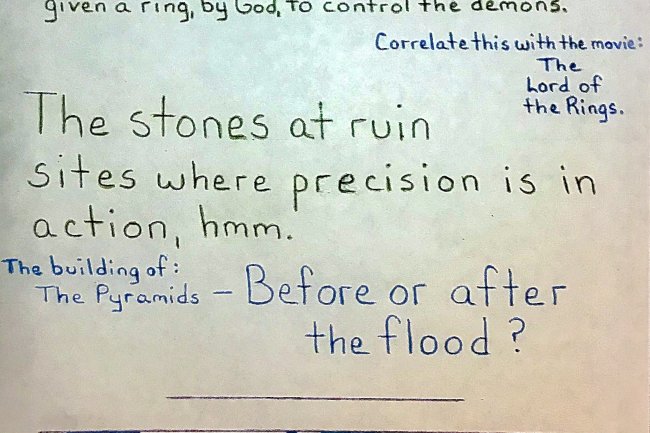 given a ring, by God, to control the demons.
Correlate this with the movie:
The
Lord of
the Rings.
The stones at ruin
sites where precision is in
action, hmm.
The building of:
The Pyramids – Before or after
the flood?